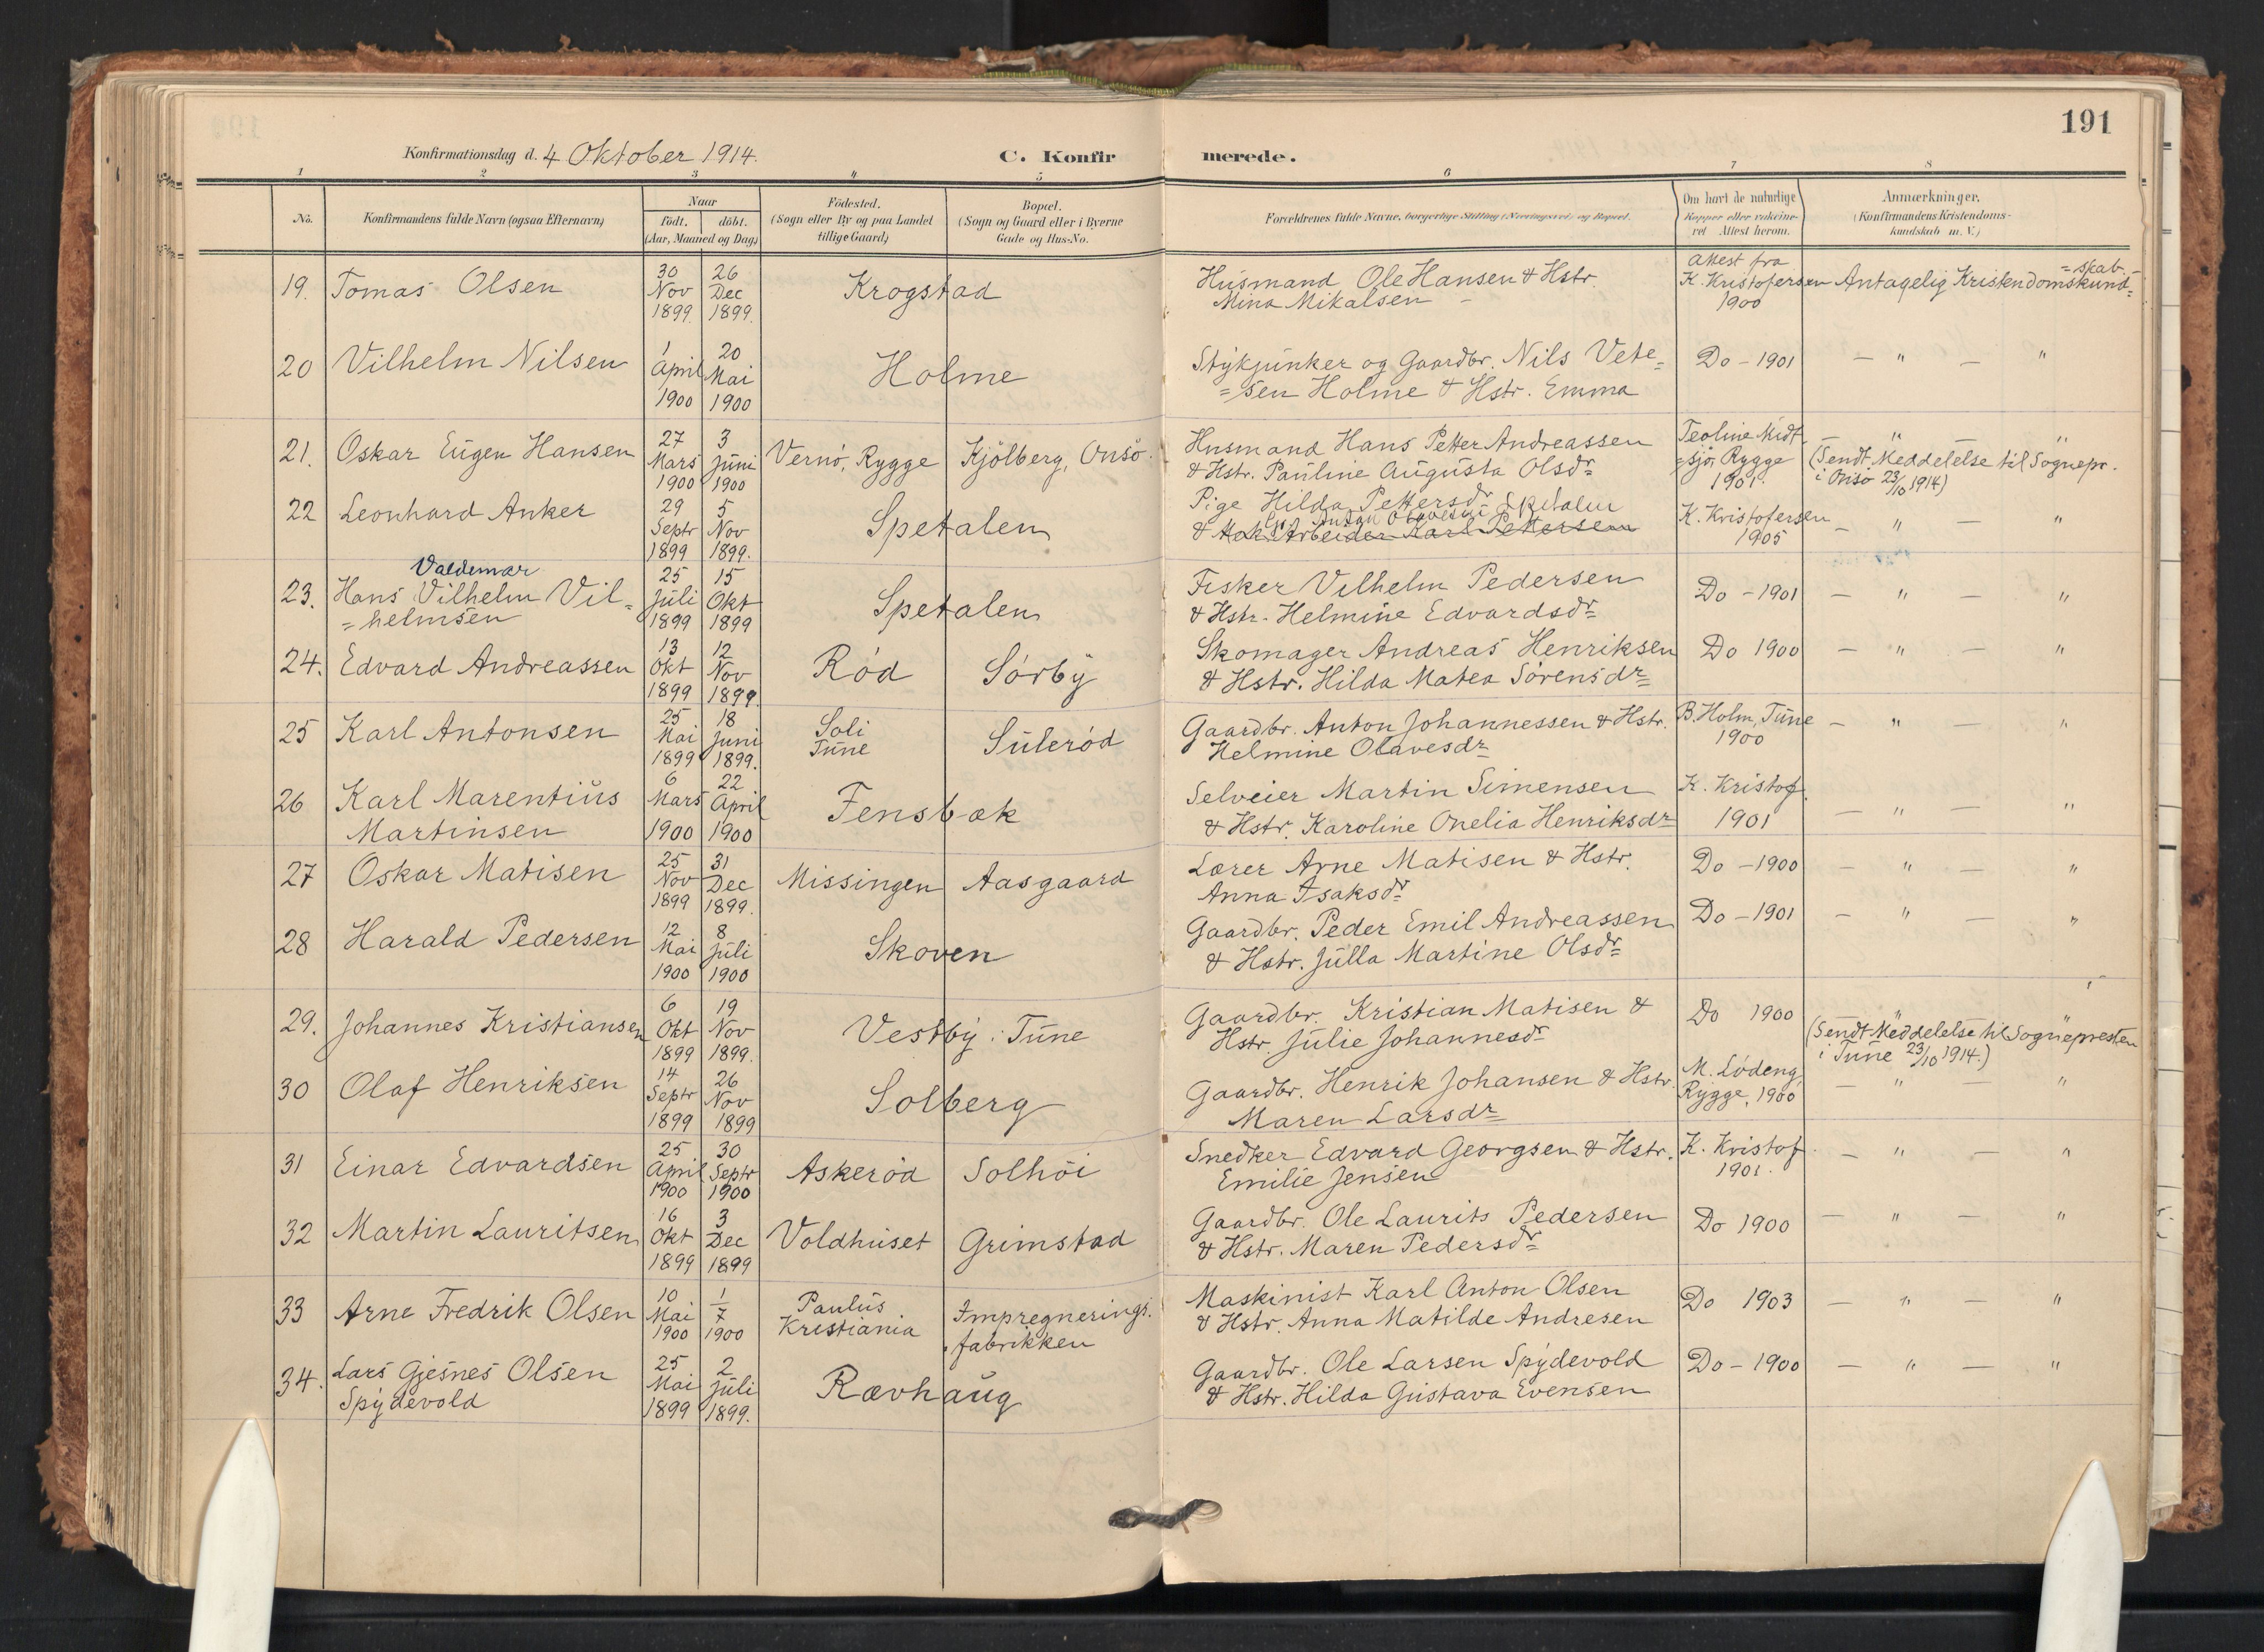 191
Konfirmationsdag d. 4 Oktober 1914. C. Konfir merede.
1 2 3 4 5 6 7 8
No. Konfirmandens fulde Navn (ogsaa Efternavn) Naar födt. döbt. (Aar, Maaned og Dag) Födested. (Sogn eller By og paa Landet tillige Gaard) Bopæl. (Sogn og Gaard eller i Byerne Gade og Hus-No. Forældrenes fulde Navne, borgerlige Stilling (Næringsvei) og Bopæl. Om havt de naturlige Kopper eller vakcineret Attest herom. Anmærkninger. (Konfirmandens Kristendomskundskab m. V.)
19. Tomas Olsen 30 Nov 1899. 26 Dec 1899. Krogstad Husmand Ole Hansen & Hstr.
Mina Mikalsen - Attest fra K. Kristofersen 1900 Antagelig Kristendomskund= =skab.
20 Vilhelm Nilsen 1 April 1900 20 Mai 1900 Holme Stykjunker og Gaardbr. Nils Vete=
=sen Holme & Hstr. Emma Do - 1901 — " — "
21. Oskar Eugen Hansen 27 Mars 1900 3 Juni 1900 Vernö, Rygge Kjölberg, Onsö. Husmand Hans Petter Andreassen
& Hstr. Pauline Augusta Olsdr Teoline Midt=
=sjö, Rygge 1901. — " — "
(Sendt Meddelelse til Sognepr.
i Onsö 23/10 1914)
22 Leonhard Anker 29 Septr 1899 5 Nov 1899. Spetalen Pige Hilda Pettersdr Spetalen
& Arbeider Karl Pettersen K. Kristofersen
1905 — " — "
Valdemar
23. Hans Vilhelm Vil=
=helmsen 25 Juli 1899 15 Okt 1899 Spetalen Fisker Vilhelm Pedersen
& Hstr. Helmine Edvardsdr Do - 1901 — " — "
24. Edvard Andreassen 13 Okt 1899 12 Nov 1899. Röd Sörby Skomager Andreas Henriksen
& Hstr. Hilda Matea Sörensdr Do 1900 — " — "
25 Karl Antonsen 25 Mai 1899 18 Juni 1899. Soli
Tune Suleröd Gaardbr. Anton Johannessen & Hstr.
Helmine Olavesdr B. Holm, Tune
1900 — " — "
26 Karl Marentius
Martinsen 6 Mars 1900 22 April 1900 Fensbæk Selveier Martin Simensen
& Hstr. Karoline Onelia Henriksdr K. Kristof.
1901 — " — "
27 Oskar Matisen 25 Nov 1899 31 Dec 1899. Missingen Aasgaard Lærer Arne Matisen & Hstr.
Anna Isaksdr Do - 1900 — " — "
28 Harald Pedersen 12 Mai 1900 8 Juli 1900 Skoven Gaardbr. Peder Emil Andreassen
& Hstr. Julla Martine Olsdr Do - 1901 — " — "
29. Johannes Kristiansen 6 Okt 1899 19 Nov 1899. Vestby i Tune Gaardbr. Kristian Matisen &
Hstr. Julie Johannesdr Do 1900 " "
(Sendt Meddelelse til Sognepresten
i Tune 23/10 1914.)
30 Olaf Henriksen 14 Septr 1899 26 Nov 1899 Solberg Gaardbr. Henrik Johansen & Hstr.
Maren Larsdr M. Lödeng,
Rygge, 1900 — " — "
31 Einar Edvardsen 25 April 1900 30 Septr 1900 Askeröd Solhöi Snedker Edvard Georgsen & Hstr.
Emilie Jensen K. Kristof
1901. — " — "
32 Martin Lauritsen 16 Okt 1899 3 Dec 1899 Voldhuset Grimstad Gaardbr. Ole Laurits Pedersen
& Hstr. Maren Pedersdr Do 1900 — " — "
33 Arne Fredrik Olsen 10 Mai 1900 1/7 1900 Paulus
Kristiania Impregnerings.
fabrikken Maskinist Karl Anton Olsen
& Hstr. Anna Matilde Andresen Do 1903 — " — "
34. Lars Gjesnes Olsen
Spydevold 25 Mai 1899 2 Juli 1899. Rævhaug Gaardbr. Ole Larsen Spydevold
& Hstr. Hilda Gustava Evensen Do - 1900 — " — "